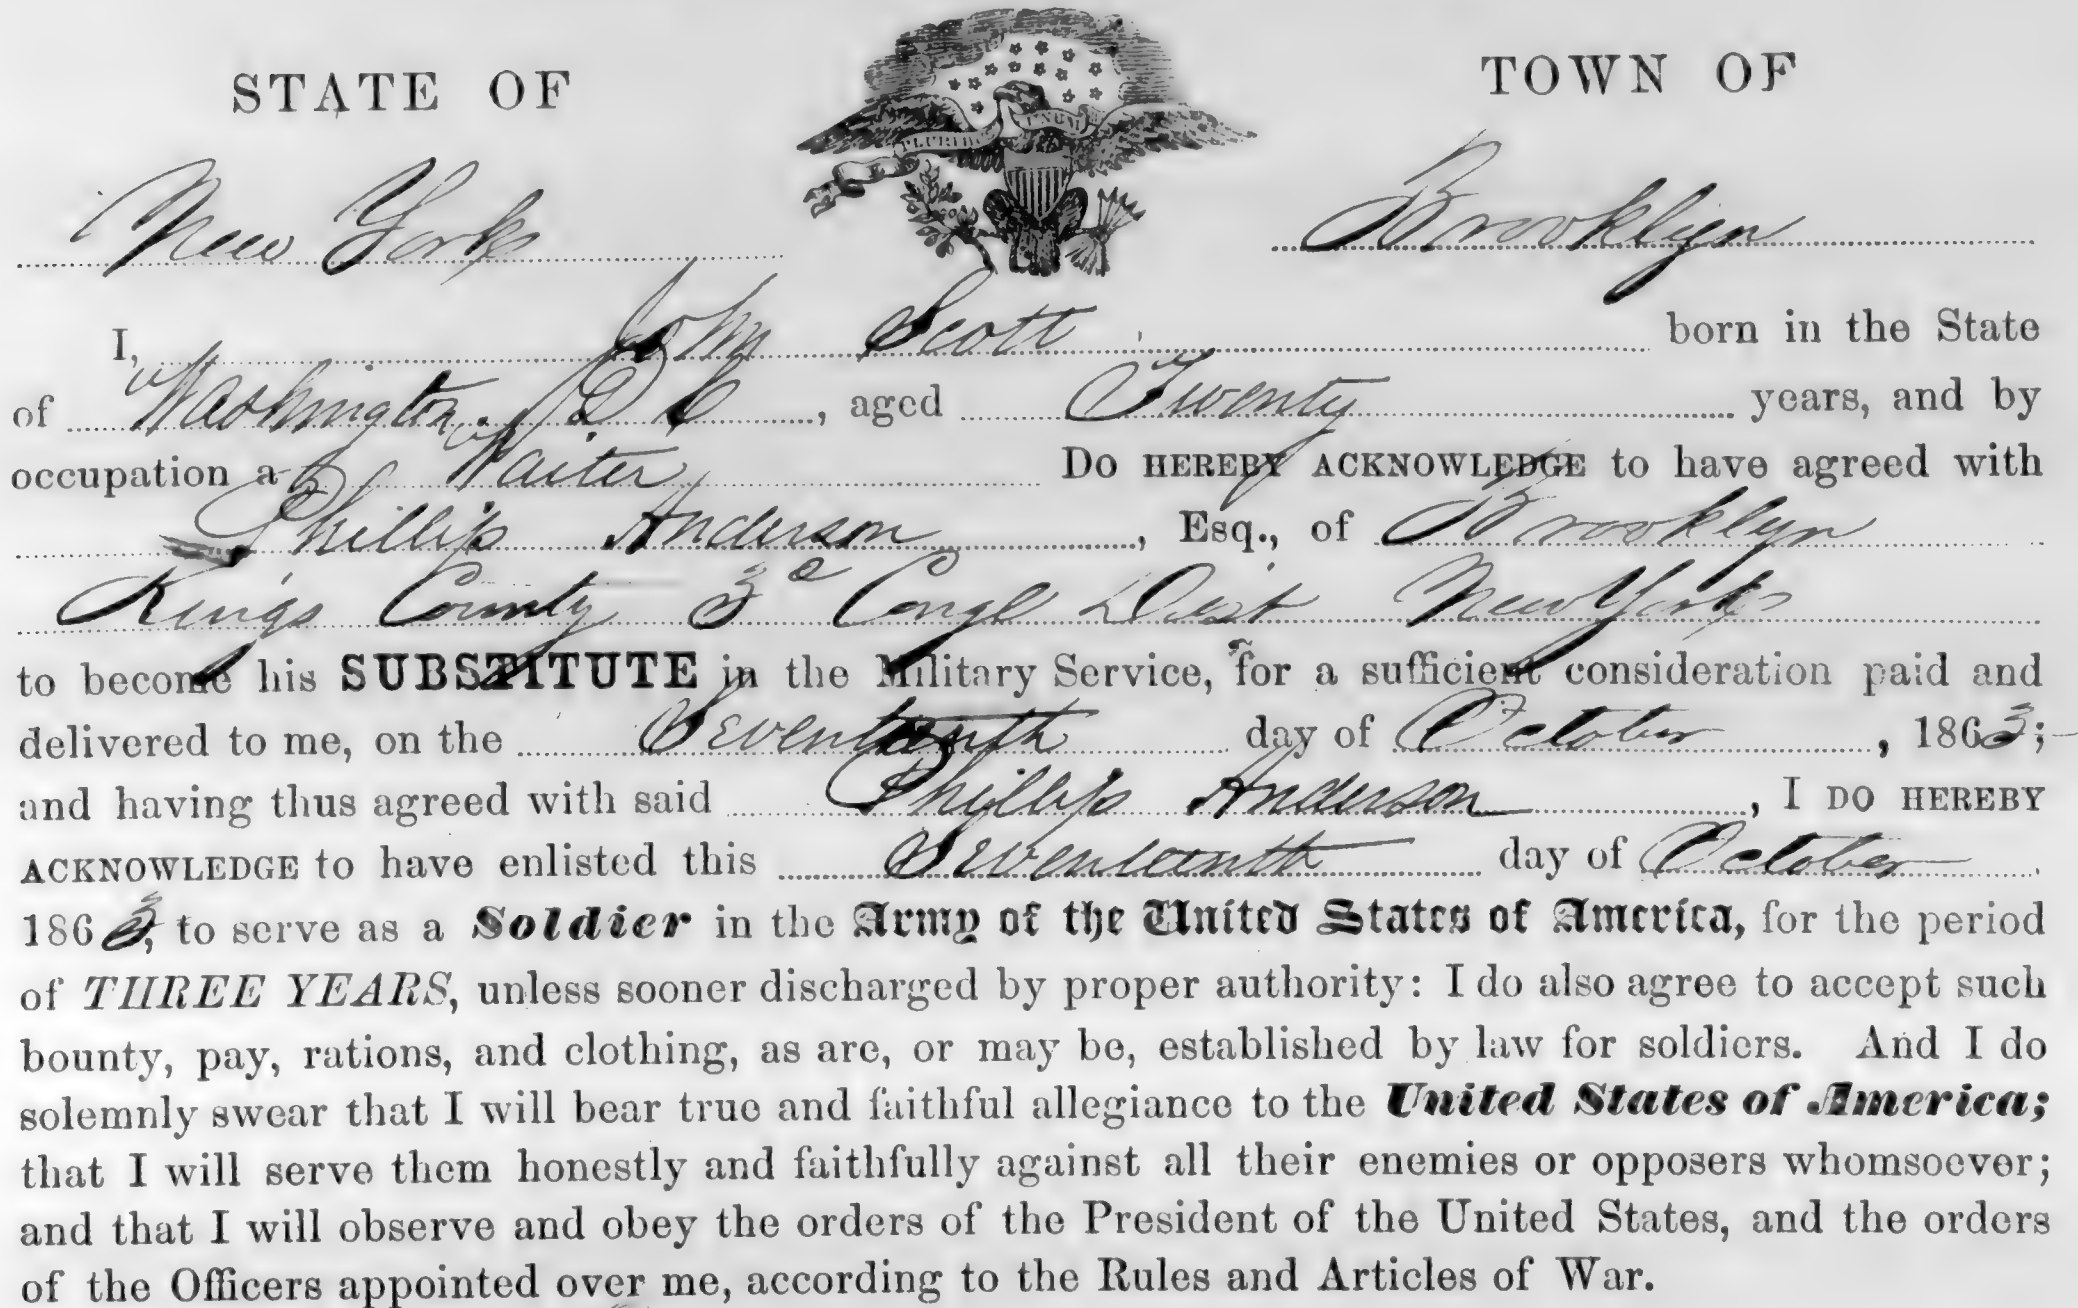 STATE OF
TOWN OF
PLURIBUS UNUM
New York
Brooklyn
I, John Scott born in the State
of Washington D C, aged Twenty years, and by
occupation a Waiter DO HEREBY ACKNOWLEDGE to have agreed with
Phillip Anderson, Esq., of Brooklyn
Kings County 3d Congl Dist New York
to become his SUBSTITUTE in the Military Service, for a sufficient consideration paid and
delivered to me, on the Seventeenth day of October, 1863;
and having thus agreed with said Phillip Anderson, I DO HEREBY
ACKNOWLEDGE to have enlisted this Seventeenth day of October
1863, to serve as a Soldier in the Army of the United States of America, for the period
of THREE YEARS, unless sooner discharged by proper authority: I do also agree to accept such
bounty, pay, rations, and clothing, as are, or may be, established by law for soldiers. And I do
solemnly swear that I will bear true and faithful allegiance to the United States of America;
that I will serve them honestly and faithfully against all their enemies or opposers whomsoever;
and that I will observe and obey the orders of the President of the United States, and the orders
of the Officers appointed over me, according to the Rules and Articles of War.